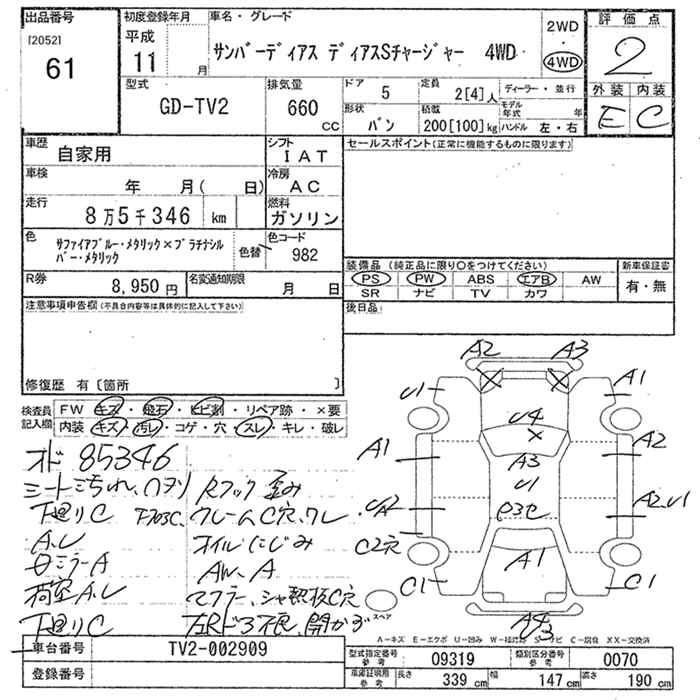 出品番号
[2052]
61
初度登録年月
平成
11 月
車名・グレード
サンバーディアス ディアスSチャージャー 4WD
2WD
・
4WD
評価点
2
外装 内装
E C
型式
GD-TV2
排気量
660
CC
ドア
5
定員
2[4]人
ディーラー・並行
モデル年式 年
形状
バン
積載
200[100]kg
ハンドル 左・右
車歴
自家用
シフト
IAT
車検
年 月( 日)
冷房
AC
走行
8万5千346 km
燃料
ガソリン
色
サファイアブルー・メタリック×プラチナシルバー・メタリック
色替
色コード
982
R券
8,950円
名変通知期限
月 日
セールスポイント(正常に機能するものに限ります)
装備品 (純正品に限り○をつけてください)
PS PW ABS エアB AW
SR ナビ TV カワ
新車保証書
有・無
後日品
注意事項申告欄(不具合内容等は具体的に記入して下さい)
修復歴 有〔箇所 〕
検査員記入欄
FW キズ・飛石・ヒビ割・リペア跡・×要
内装 キズ・汚レ・コゲ・穴・スレ・キレ・破レ
オド 85346
シート
下廻りC
クレームC穴、ワレ
A、レ
オイルにじみ
ミラーA
AW、A
荷室A、レ
マフラー、シャ熱板C穴
下廻りC
左Rドア不良、開かず
A2 A3
U1 A1
U4
A1 A3 A2
U1
A2 U1
C2穴
C1 A1 C1
スペア
A4
U3
A-キズ E-エクボ U-凹み W-補修跡 S-サビ C-腐食 XX-交換済
車台番号
TV2-002909
登録番号
型式指定番号
参考
09319
類別区分番号
参考
0070
車庫証明用
参考
長さ
339 cm
幅
147 cm
高さ
190 cm